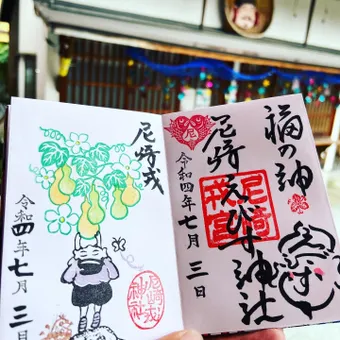 福の神
尼崎えびす神社
尼崎
戎宮
令和四年七月三日
えびす
尼
尼崎戎
令和四年七月三日
尼崎戎
神社